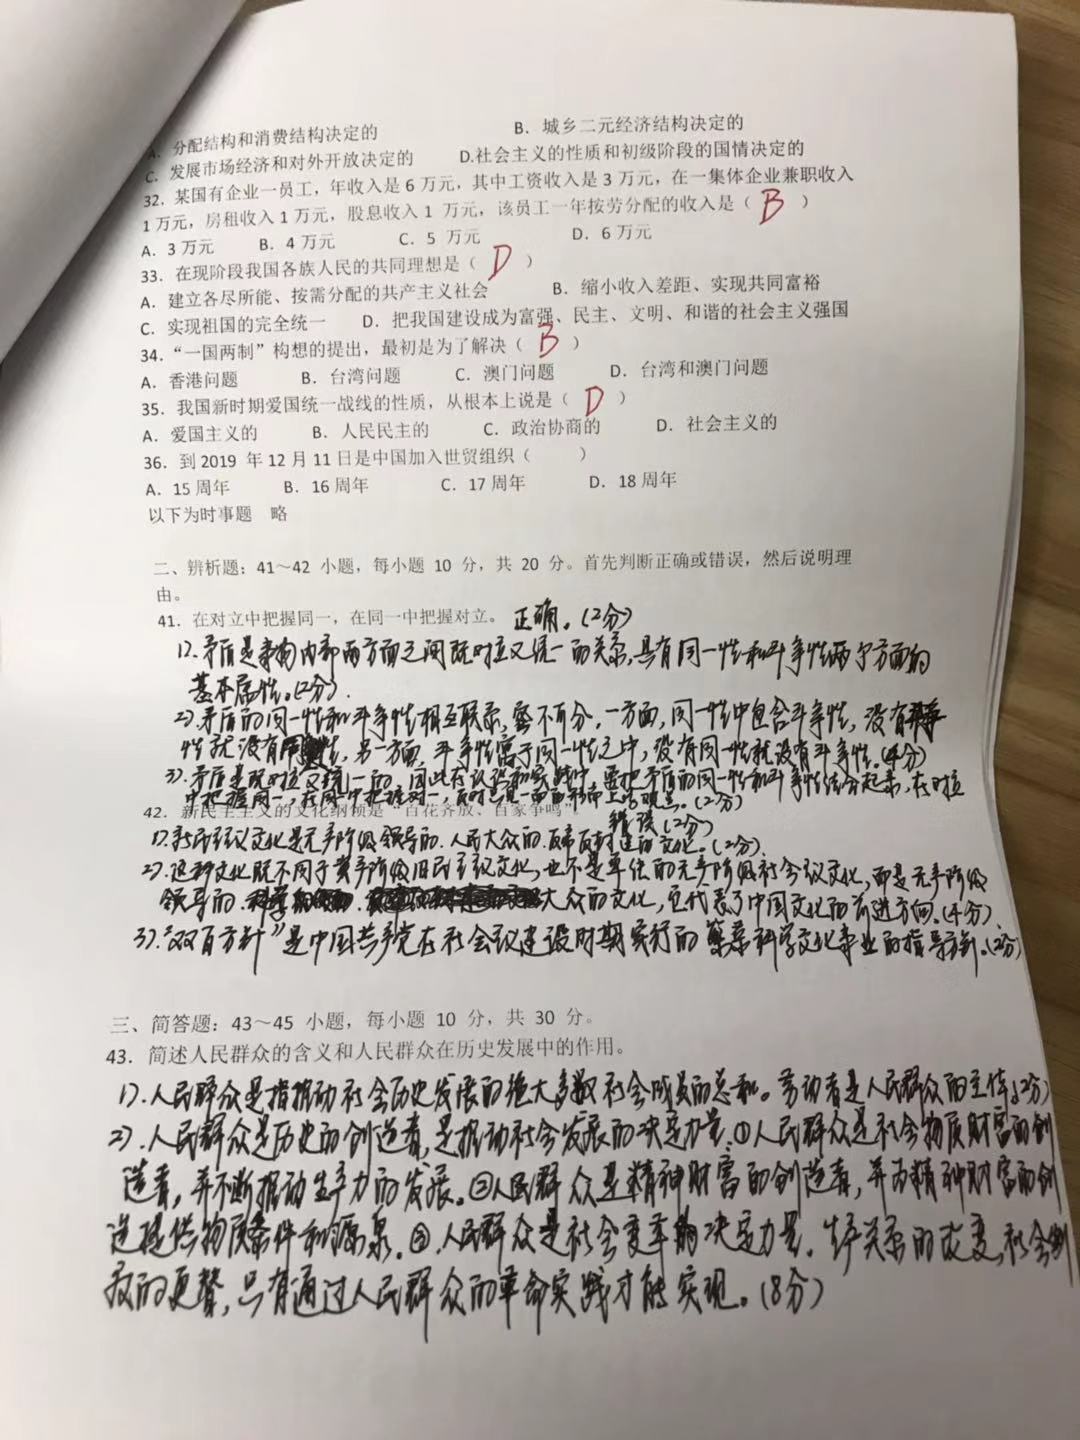 A. 分配结构和消费结构决定的 B. 城乡二元经济结构决定的
C. 发展市场经济和对外开放决定的 D.社会主义的性质和初级阶段的国情决定的
32. 某国有企业一员工，年收入是 6 万元，其中工资收入是 3 万元，在一集体企业兼职收入
1 万元，房租收入 1 万元，股息收入 1 万元，该员工一年按劳分配的收入是（ B ）
A. 3 万元 B. 4 万元 C. 5 万元 D. 6 万元
33. 在现阶段我国各族人民的共同理想是（ D ）
A. 建立各尽所能、按需分配的共产主义社会 B. 缩小收入差距、实现共同富裕
C. 实现祖国的完全统一 D. 把我国建设成为富强、民主、文明、和谐的社会主义强国
34. “一国两制”构想的提出，最初是为了解决（ B ）
A. 香港问题 B. 台湾问题 C. 澳门问题 D. 台湾和澳门问题
35. 我国新时期爱国统一战线的性质，从根本上说是（ D ）
A. 爱国主义的 B. 人民民主的 C. 政治协商的 D. 社会主义的
36. 到 2019 年 12 月 11 日是中国加入世贸组织（ ）
A. 15 周年 B. 16 周年 C. 17 周年 D. 18 周年
以下为时事题 略
二、辨析题：41～42 小题，每小题 10 分，共 20 分。首先判断正确或错误，然后说明理
由。
41. 在对立中把握同一，在同一中把握对立。 正确。(2分)
1). 矛盾是事物内部两方面之间既对立又统一的关系,具有同一性和斗争性两个方面的
基本属性。(2分).
2). 矛盾的同一性和斗争性相互联系,密不可分。一方面,同一性中包含斗争性,没有斗争
性就没有同一性,另一方面,斗争性寓于同一性之中,没有同一性就没有斗争性。(4分)
3). 矛盾是既对立又统一的,因此在认识和实践中,要把矛盾的同一性和斗争性结合起来,在对立
中把握同一,在同一中把握对立,
(2分)
42. 新民主主义的文化纲领是“百花齐放、百家争鸣”。
错误(2分)
1). 新民主主义文化是无产阶级领导的.人民大众的.反帝反封建的文化。(2分).
2). 这种文化既不同于资产阶级旧民主主义文化,也不是单纯的无产阶级社会主义文化,而是无产阶级
领导的 大众的文化,它代表了中国文化的前进方向。(4分)
3). “双百方针”是中国共产党在社会主义建设时期实行的繁荣科学文化事业的指导方针。(2分)
三、简答题：43～45 小题，每小题 10 分，共 30 分。
43. 简述人民群众的含义和人民群众在历史发展中的作用。
1). 人民群众是指推动社会历史发展的绝大多数社会成员的总和。劳动者是人民群众的主体(2分)
2). 人民群众是历史的创造者,是推动社会发展的决定力量.①人民群众是社会物质财富的创
造者,并不断推动生产力的发展。②人民群众是精神财富的创造者,并为精神财富的创
造提供物质条件和源泉。③.人民群众是社会变革的决定力量.生产关系的改变,社会制
度的更替,只有通过人民群众的革命实践才能实现。(8分)